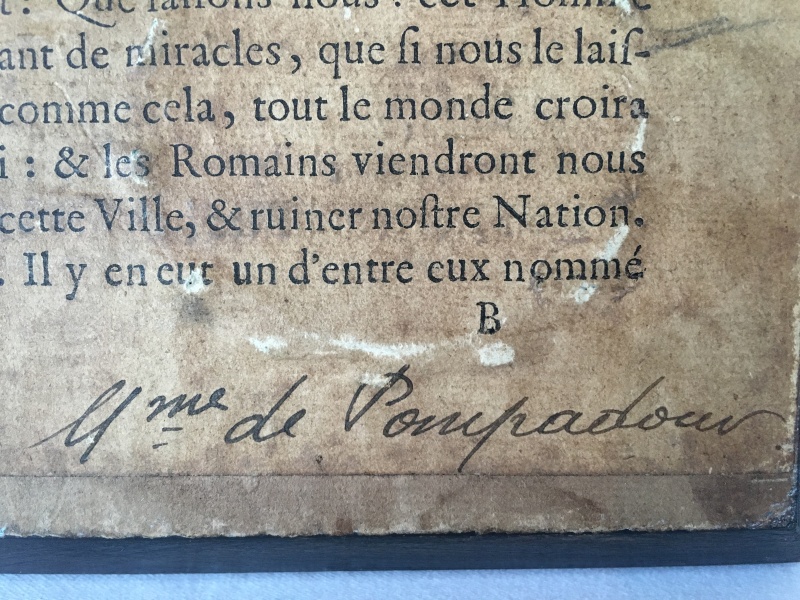 : Que faisons nous ? cet Homme
ant de miracles, que ſi nous le laiſ-
comme cela, tout le monde croira
i : & les Romains viendront nous
cette Ville, & ruiner noſtre Nation.
. Il y en eut un d'entre eux nommé
B
Mme de Pompadour